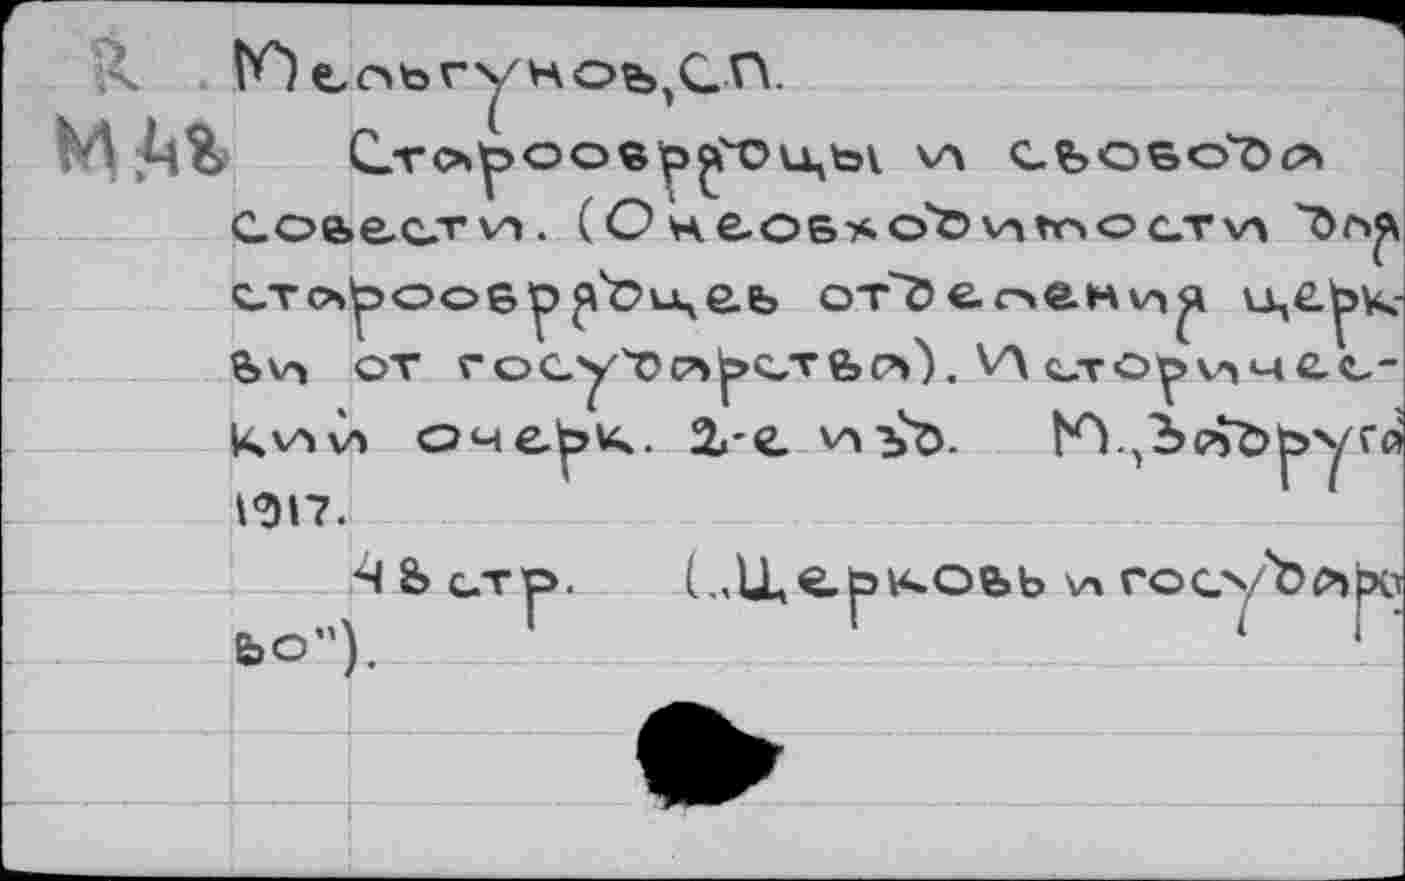 R Мельгунов, С.П.
М48 Старообрядцы и свобода
совести. (О необходимости для
старообрядцев отделения церк-
ви от государства). Историчес-
кий очерк. 2-е изд. М., Задруга
1917.
48 стр. („Церковь и государст
во").